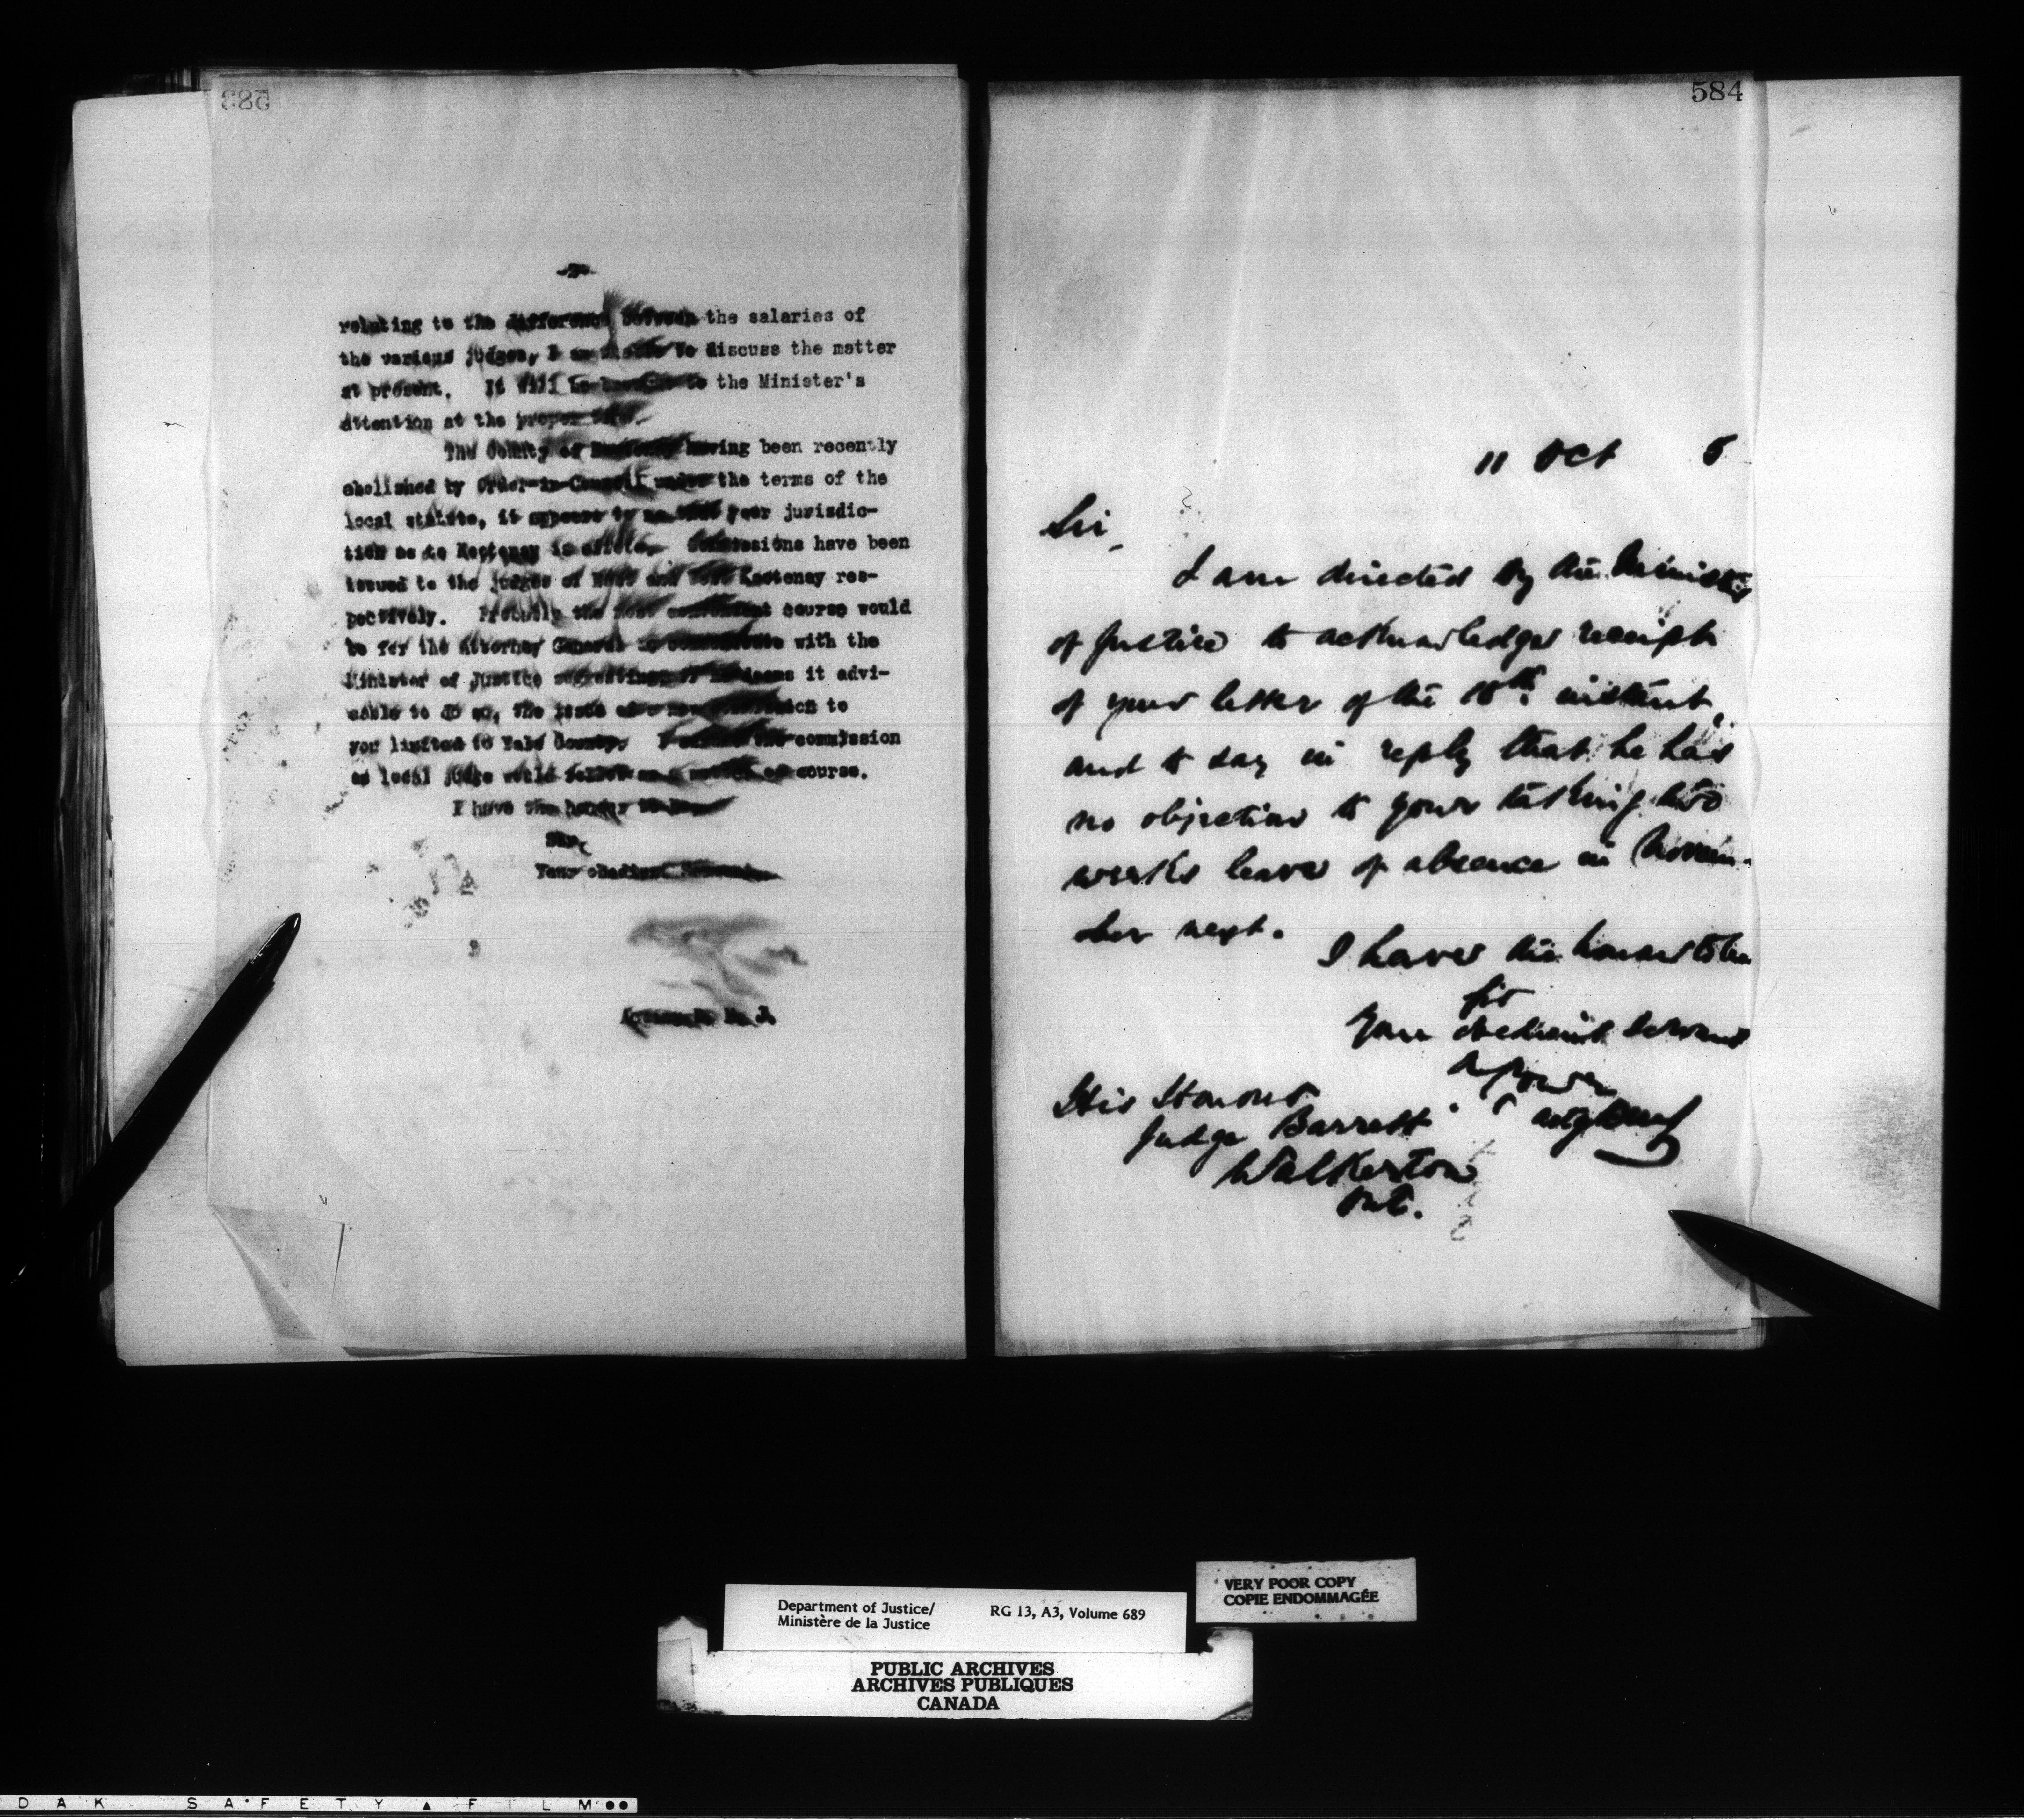 583
-2-
relating to the difference between the salaries of
the various judges, I am unable to discuss the matter
at present. It will be brought to the Minister's
attention at the proper time.
The County of Kootenay having been recently
abolished by Order-in-Council under the terms of the
local statute, it appears to me that your jurisdic-
tion as to Kootenay is at end. Commissions have been
issued to the judges of West and East Kootenay res-
pectively. Probably the most convenient course would
be for the Attorney General to communicate with the
Minister of Justice suggesting, if he deems it advi-
sable to do so, the issue of a new commission to
you limited to Yale County. I the commission
as local judge would follow as a matter of course.
I have the honour to be,
Sir,
Your obedient Servant,
584
11 Oct 5
Sir,
I am directed by the Minister
of Justice to acknowledge receipt
of your letter of the 10th. instant,
and to say in reply that he has
no objection to your taking two
weeks leave of absence in Novem-
ber next.
I have the honour to be
Sir
Your obedient servant
A Power
His Honour
Judge Barrett
Walkerton
Ont.
Department of Justice/
Ministère de la Justice
RG 13, A3, Volume 689
VERY POOR COPY
COPIE ENDOMMAGÉE
PUBLIC ARCHIVES
ARCHIVES PUBLIQUES
CANADA
DAK SAFETY FILM